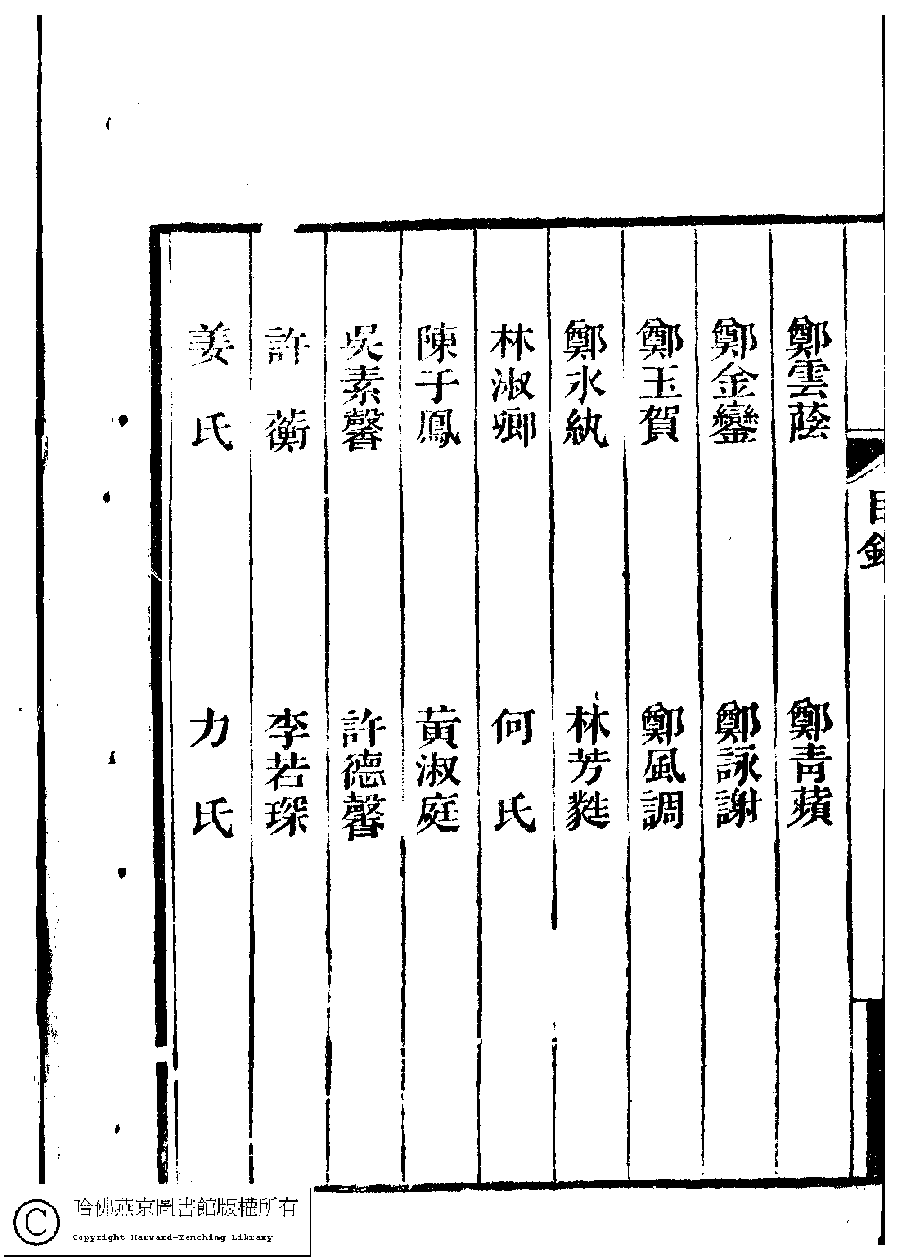 目錄
鄭雲蔭 鄭青蘋
鄭金鑾 鄭詠謝
鄭玉賀 鄭風調
鄭冰紈 林芳蕤
林淑卿 何氏
陳子鳳 黃淑庭
吳素馨 許德馨
許蘅 李若琛
姜氏 力氏
哈佛燕京圖書館版權所有
Copyright Harvard-Yenching Library